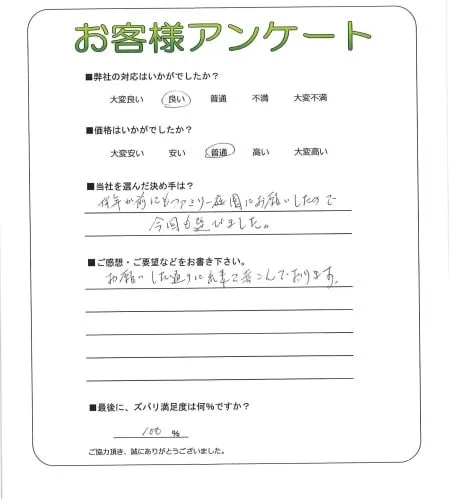 お客様アンケート
■弊社の対応はいかがでしたか?
大変良い 良い 普通 不満 大変不満
■価格はいかがでしたか?
大変安い 安い 普通 高い 大変高い
■当社を選んだ決め手は?
年か前にもファミリー庭園にお願いしたので
今回も選びました。
■ご感想・ご要望などをお書き下さい。
お願いした通りに出来て喜こんでおります。
■最後に、ズバリ満足度は何%ですか?
100 %
ご協力頂き、誠にありがとうございました。